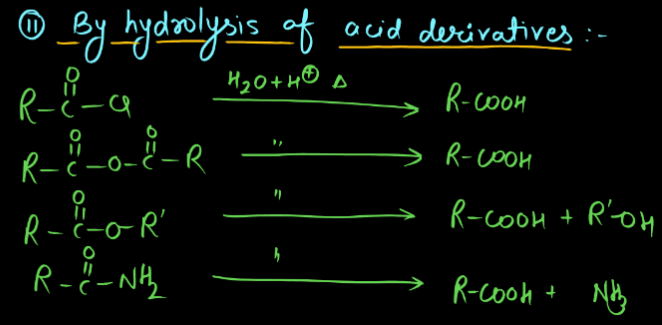 ⑪ By hydrolysis of acid derivatives :-
R-C(=O)-Cl H₂O+H⊕ Δ → R-COOH
R-C(=O)-O-C(=O)-R " → R-COOH
R-C(=O)-O-R' " → R-COOH + R'-OH
R-C(=O)-NH₂ " → R-COOH + NH₃